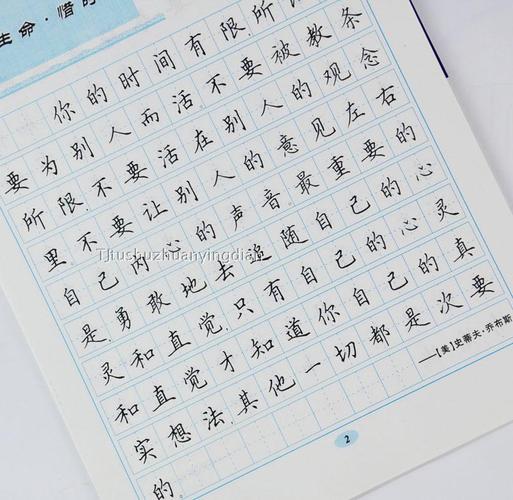 生命·惜时
你的时间有限,所
要为别人而活.不要被教条
所限,不要活在别人的观念
里.不要让别人的意见左右
自己内心的声音.最重要的
是,勇敢地去追随自己的心
灵和直觉,只有自己的心灵
和直觉才知道你自己的真
实想法,其他一切都是次要
的.
——[美]史蒂夫·乔布斯
2
Tjtushuzhuanyingdian